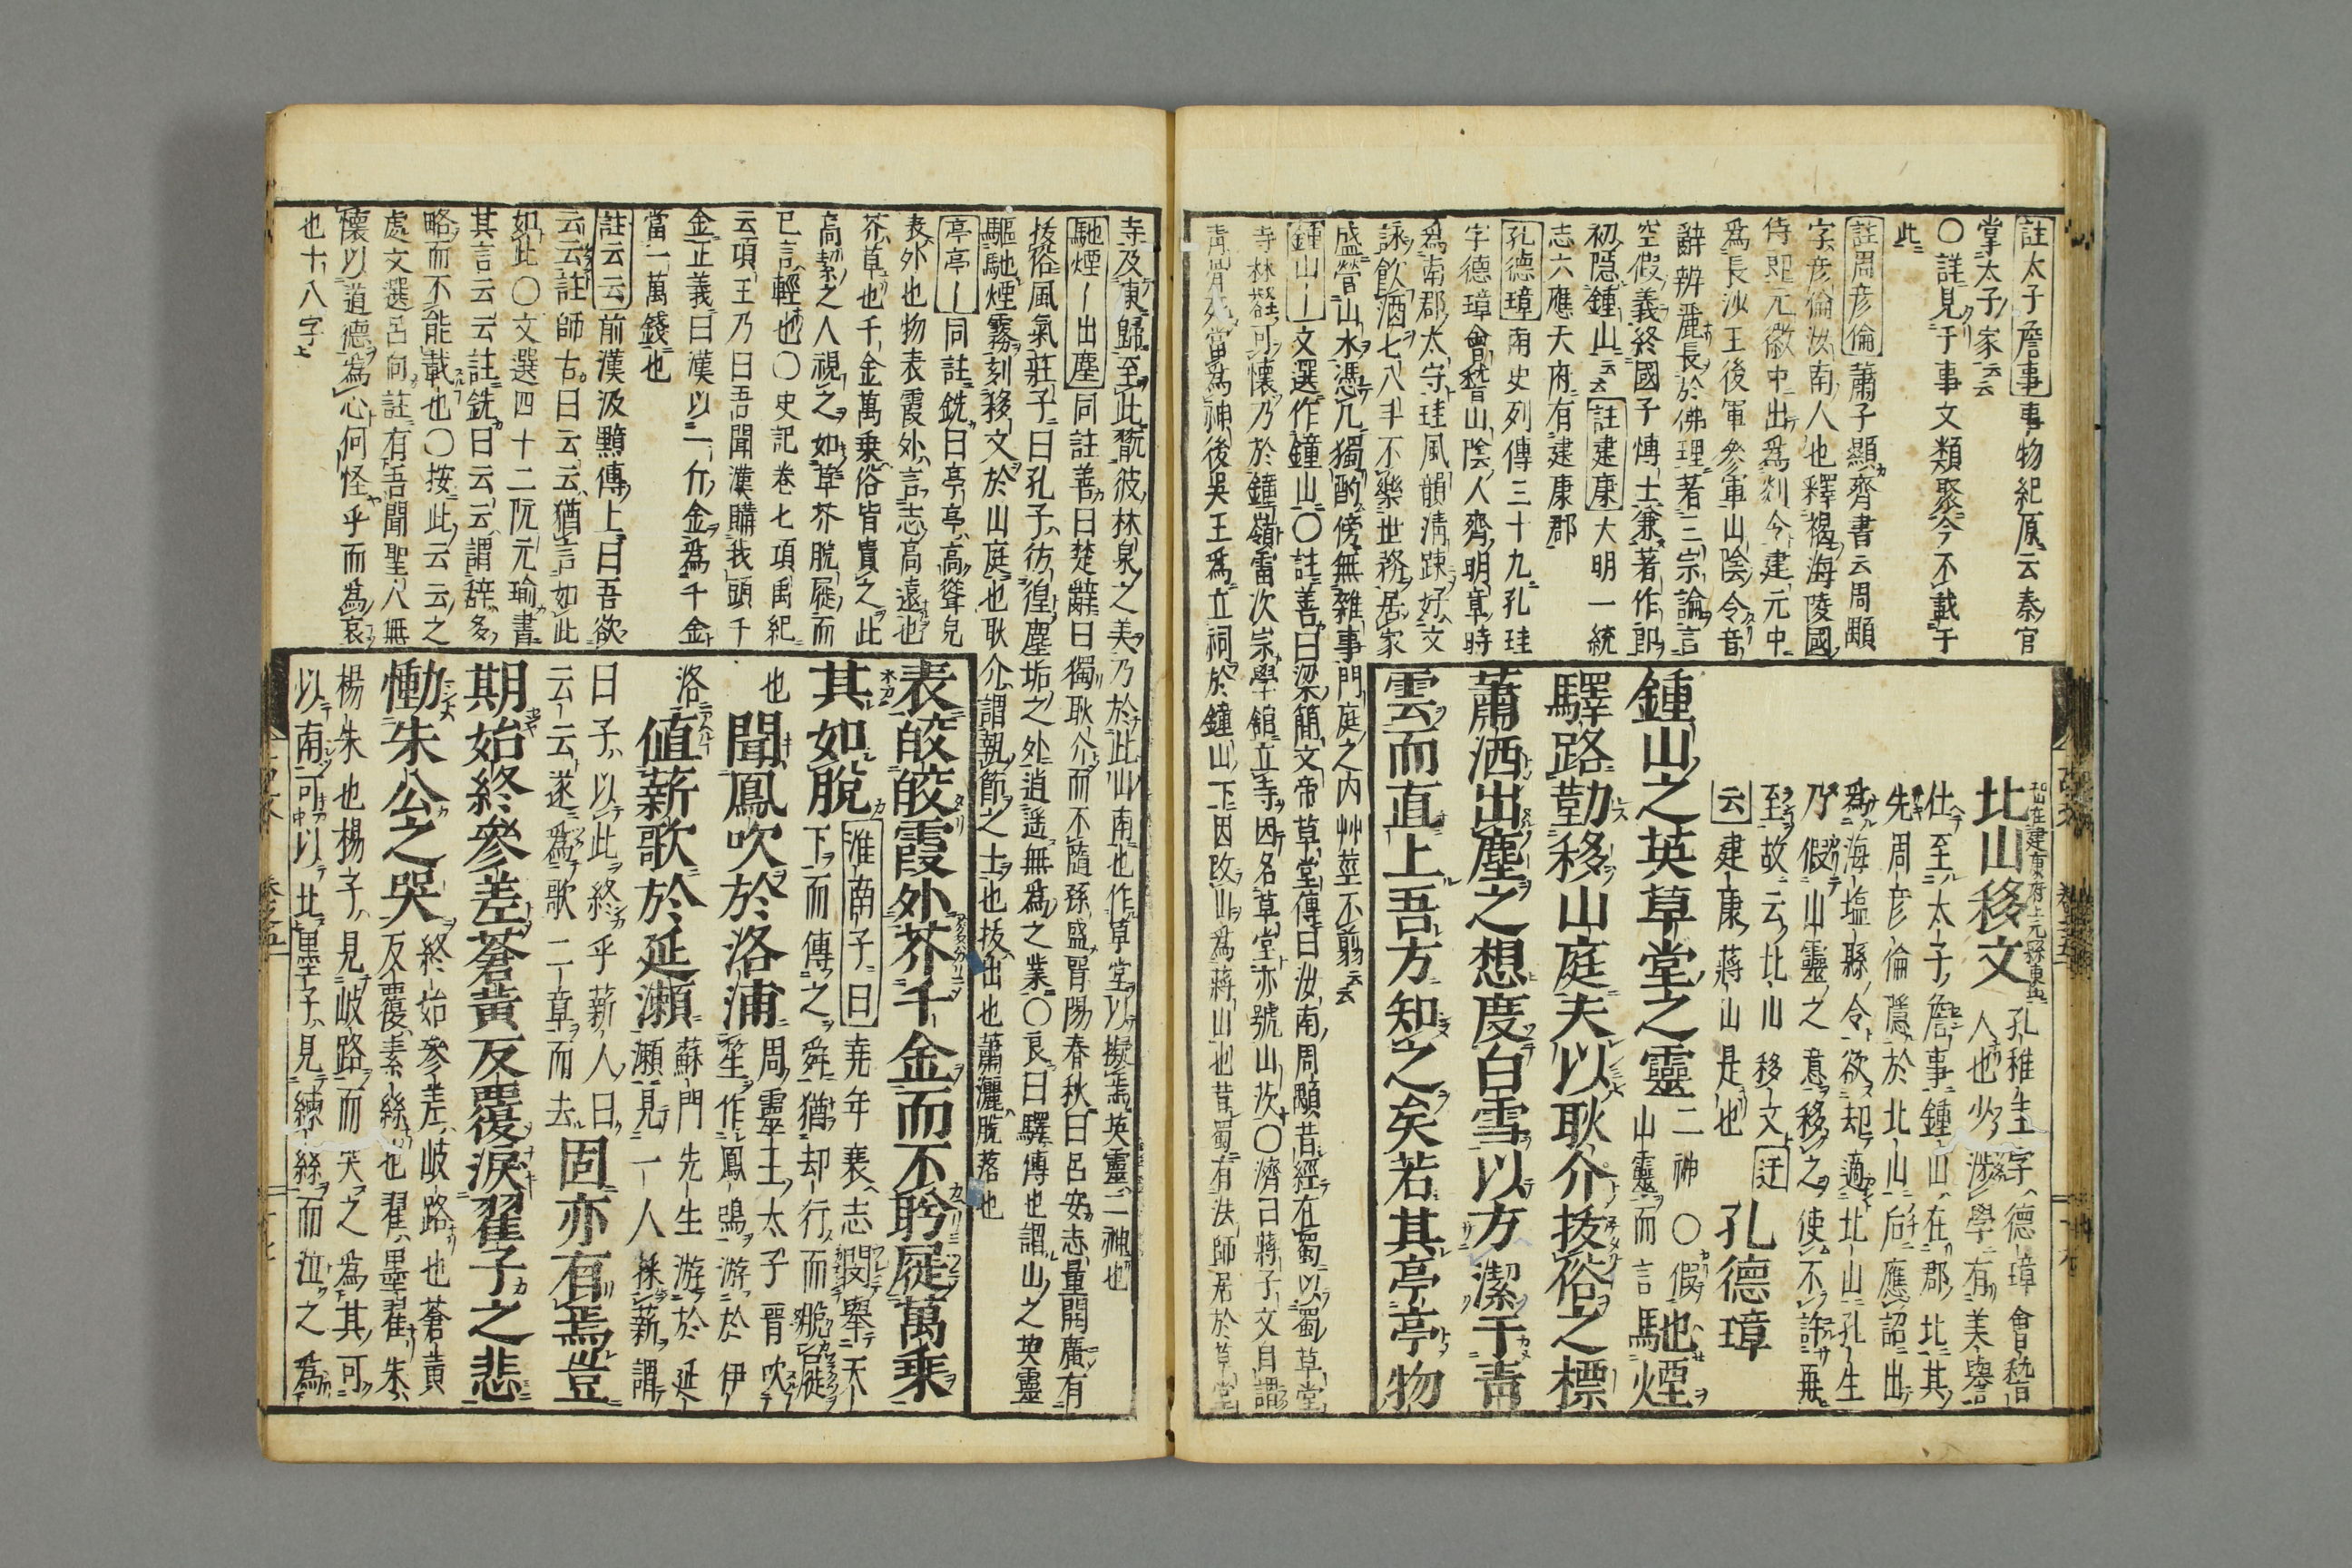 註太子詹事事物紀原云秦官
掌太子家云云
○詳見于事文類聚今不載于
此
註周彦倫蕭子顯齊書云周顒
字彦倫汝南人也釋褐海陵國
侍郎元徽中出為剡令建元中
爲長沙王後軍參軍山陰令音
辭辨麗長於佛理著三宗論言
空假義終國子博士兼著作郎
初隱鍾山云云註建康大明一統
志六應天府有建康郡
孔德璋南史列傳三十九孔珪
字德璋會稽山陰人齊明章時
爲南郡太守珪風韻清踈好文
詠飲酒七八斗不樂世務居家
盛營山水憑几獨酌傍無雜事門庭之内艸莖不剪云云
鍾山ー文選作鐘山○註善曰梁簡文帝草堂傳曰汝南周顒昔經在蜀以蜀草堂
寺林壑可懷乃於鐘嶺雷次宗學館立寺因名草堂亦號山茨○濟曰蔣子文自謂
青骨死當爲神後吳王爲立祠於鐘山下因改山爲蔣山也昔蜀有法師居於草堂
北山移文
孔稚生字德璋會稽
人也少涉學有美譽
仕至太子詹事鍾山在郡北其
先周彦倫隱於北山后應詔出
爲海塩縣令欲却適北山孔生
乃假山靈之意移之使不許再
至故云北山移文迂
云建康蔣山是也
孔德璋
鍾山之英草堂之靈二神○假山靈而言也馳煙
驛路勒移山庭夫以耿介拔俗之標
蕭洒出塵之想度白雪以方潔干青
雲而直上吾方知之矣若其亭亭物
寺及東歸至此翫彼林泉之美乃於此山南也作草堂以擬焉英靈二神也
馳煙ー出塵同註善曰楚辭曰獨耿介而不隨孫盛晋陽春秋曰呂安志量開廣有
拔俗風氣莊子曰孔子彷徨塵垢之外逍遥無爲之業○良曰驛傳也謂山之英靈
驅馳煙霧刻移文於山庭也耿介謂執節之士也拔出也蕭灑脫落也
亭亭ー同註銑曰亭亭高聳皃
表外也物表霞外言志高遠也
芥草也千金萬乗俗皆貴之此
高絜之人視之如草芥脫屣而
已言輕也○史記巻七項禹紀
云項王乃曰吾聞漢購我頭千
金正義曰漢以一斤金爲千金
當一萬錢也
註云云前漢汲黯傳上曰吾欲
云云註師古曰云云猶言如此
如此○文選四十二阮元瑜書
其言云云註銑曰云云謂辭多
略而不能載也○按此云云之
處文選呂向註有吾聞聖人無
懷以道德爲心何怪乎而爲哀
也十八字
表皎皎霞外芥千金而不眄屣萬乗
其如脫淮南子曰堯年衰志閔舉天
下而傳之舜猶却行而脫屣
也聞鳳吹於洛浦周靈王太子晋吹
笙作鳳鳴游於伊
洛値薪歌於延瀬蘇門先生游於延
瀬見一人採薪謂
曰子以此終乎薪人曰
云云遂爲歌二章而去固亦有焉豈
期始終參差蒼黃反覆淚翟子之悲
慟朱公之哭終始參差岐路也蒼黃
反覆素絲也翟墨翟朱
楊朱也楊子見岐路而哭之爲其可
以南可以北墨子見練絲而泣之爲